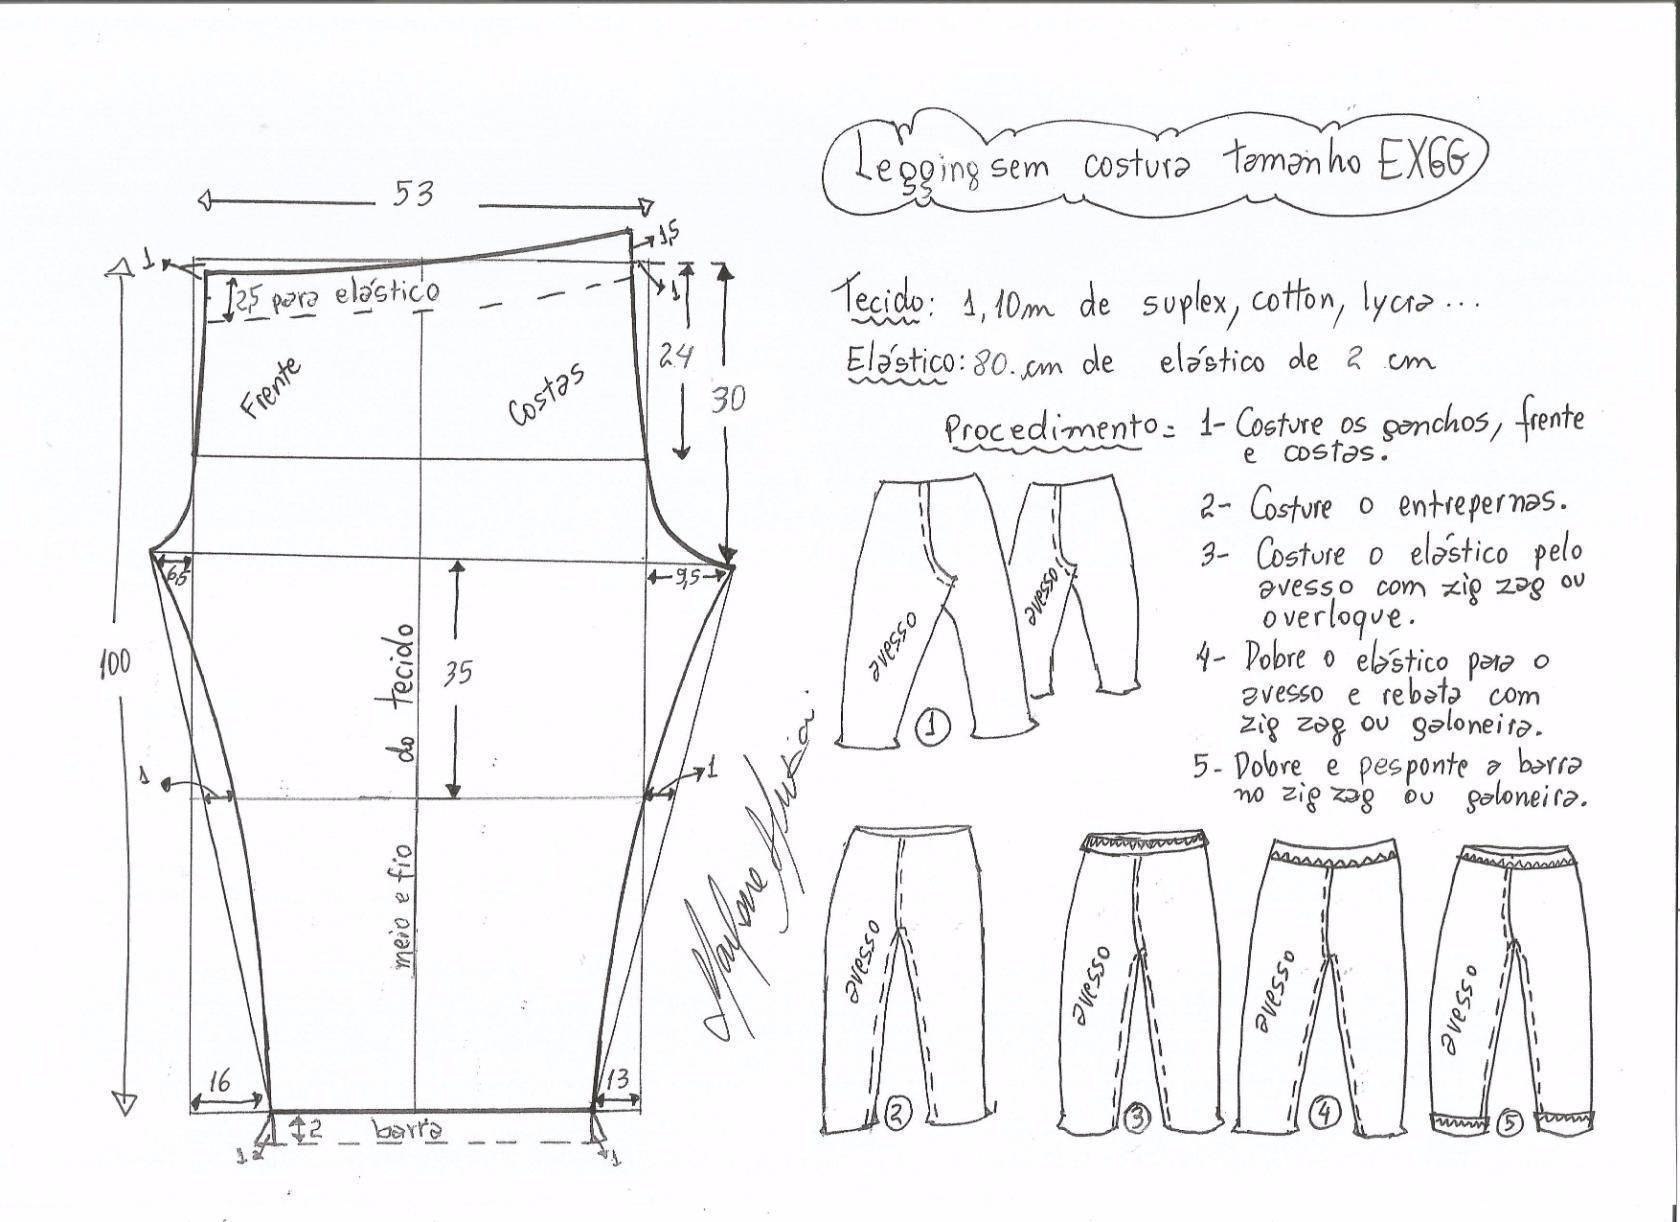 Legging sem costura tamanho EXGG
53
53
1
1,5
1
2,5 para elástico
24
30
Frente
Costas
Tecido: 1,10m de suplex, cotton, lycra...
Elástico: 80.cm de elástico de 2 cm
Procedimento= 1- Costure os ganchos, frente
e costas.
2- Costure o entrepernas.
3- Costure o elástico pelo
avesso com zig zag ou
overloque.
4- Dobre o elástico para o
avesso e rebata com
zig zag ou galoneira.
5- Dobre e pesponte a barra
no zig zag ou galoneira.
6,5
9,5
100
35
meio e fio do tecido
1
1
avesso
avesso
1
16
13
2
barra
1
1
avesso
2
avesso
3
avesso
4
avesso
5